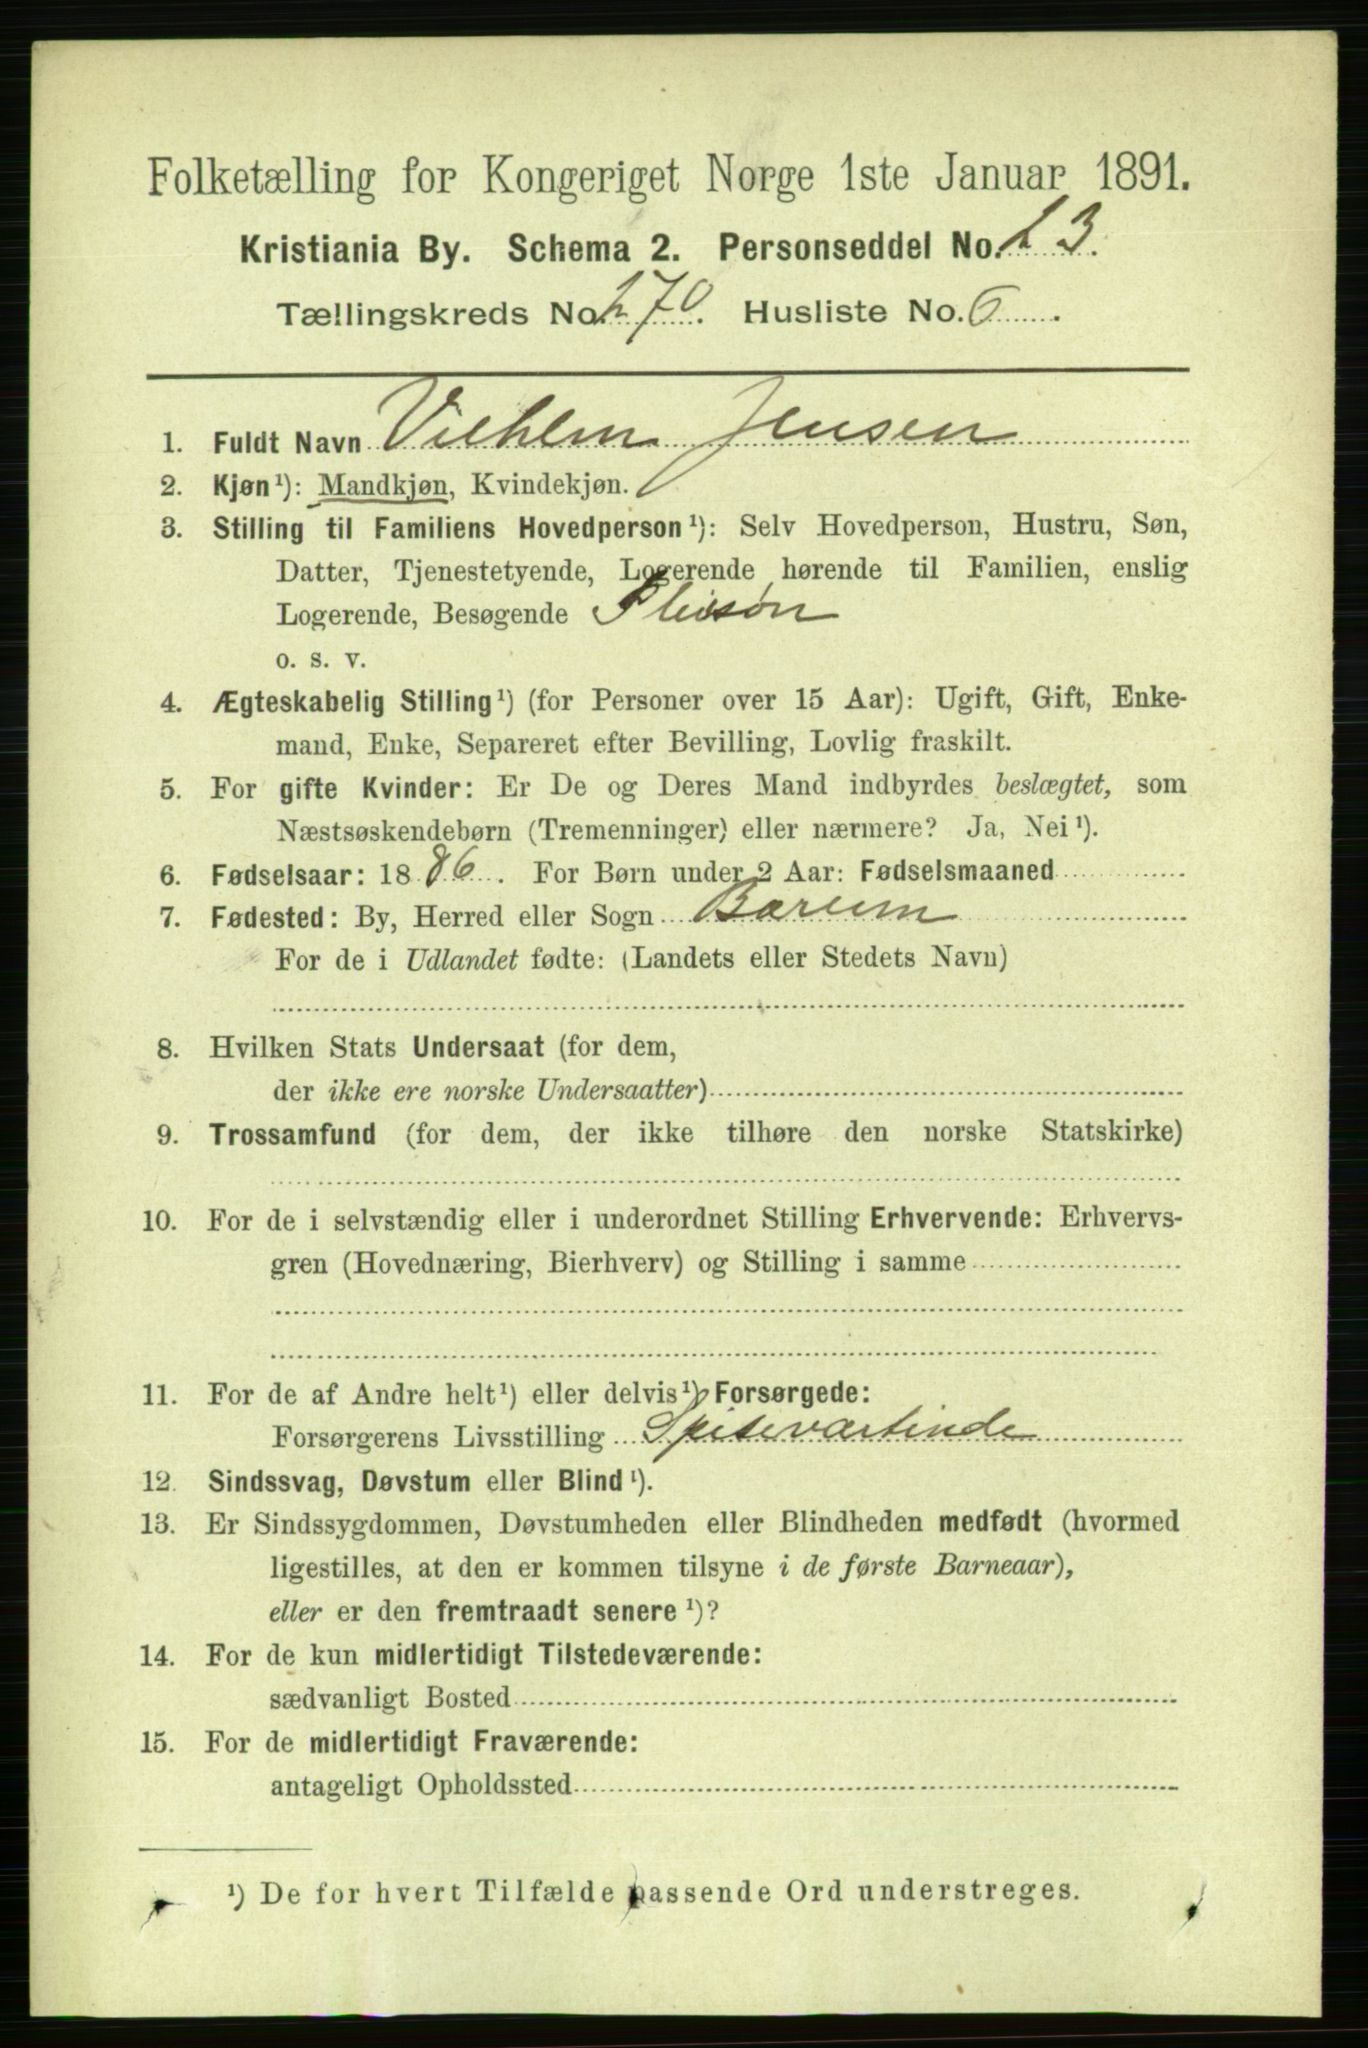 Folketælling for Kongeriget Norge 1ste Januar 1891.
Kristiania By. Schema 2. Personseddel No. 23.
Tællingskreds No. 270. Husliste No. 6.
1. Fuldt Navn Vilhlm Jensen
2. Kjøn¹): Mandkjøn, Kvindekjøn.
3. Stilling til Familiens Hovedperson¹): Selv Hovedperson, Hustru, Søn,
Datter, Tjenestetyende, Logerende hørende til Familien, enslig
Logerende, Besøgende Pleisøn
o. s. v.
4. Ægteskabelig Stilling¹) (for Personer over 15 Aar): Ugift, Gift, Enke-
mand, Enke, Separeret efter Bevilling, Lovlig fraskilt.
5. For gifte Kvinder: Er De og Deres Mand indbyrdes beslægtet, som
Næstsøskendebørn (Tremenninger) eller nærmere? Ja, Nei¹).
6. Fødselsaar: 1886. For Børn under 2 Aar: Fødselsmaaned
7. Fødested: By, Herred eller Sogn Bærum
For de i Udlandet fødte: (Landets eller Stedets Navn)
8. Hvilken Stats Undersaat (for dem,
der ikke ere norske Undersaatter)
9. Trossamfund (for dem, der ikke tilhøre den norske Statskirke)
10. For de i selvstændig eller i underordnet Stilling Erhvervende: Erhvervs-
gren (Hovednæring, Bierhverv) og Stilling i samme
11. For de af Andre helt¹) eller delvis¹) Forsørgede:
Forsørgerens Livsstilling Spiseværtinde
12. Sindssvag, Døvstum eller Blind¹).
13. Er Sindssygdommen, Døvstumheden eller Blindheden medfødt (hvormed
ligestilles, at den er kommen tilsyne i de første Barneaar),
eller er den fremtraadt senere¹)?
14. For de kun midlertidigt Tilstedeværende:
sædvanligt Bosted
15. For de midlertidigt Fraværende:
antageligt Opholdssted
¹) De for hvert Tilfælde passende Ord understreges.